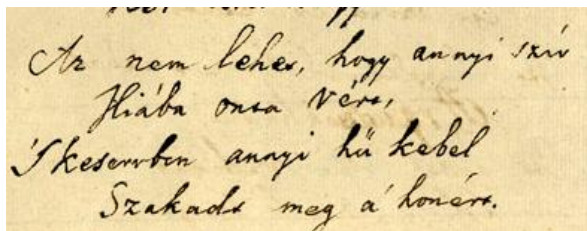 Az nem lehet, hogy annyi szív
Hiába onta vért,
'S keservben annyi hű kebel
Szakadt meg a' honért.